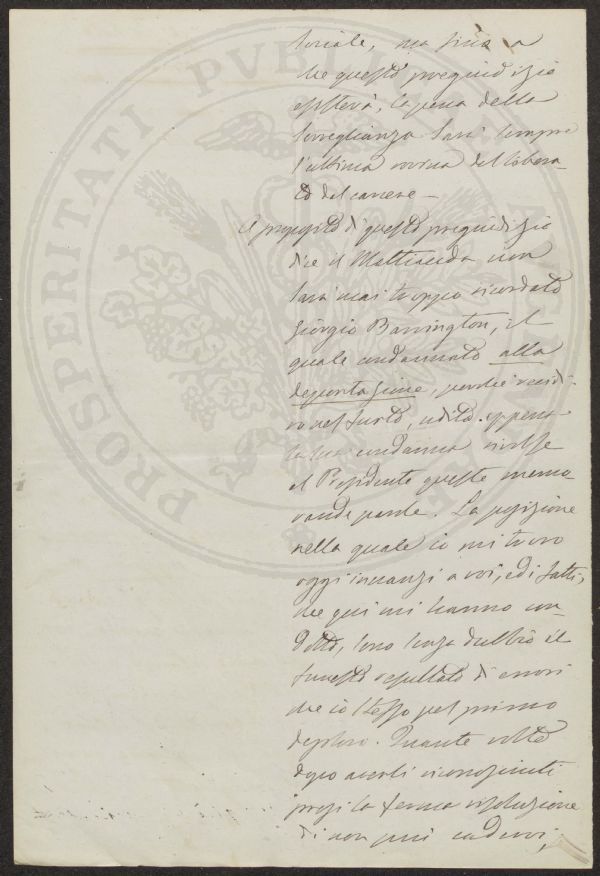 PROSPERITATI PUBLICAE AU
sociale, ma fino a
che questo pregiudizio
esisterà, la pena della
sorveglianza sarà sempre
l'ultima rovina del libera-
to dal carcere –
A proposito di questo pregiudizio
dice il non
sarà mai troppo ricordato
Giorgio Barrington, il
quale condannato alla
deportazione, perchè recidi-
vo nel furto, udita appena
la sua condanna rivolse
al Presidente queste memo-
rande parole. La posizione
nella quale io mi trovo
oggi innanzi a voi, ed i fatti,
che qui mi hanno con-
dotto, sono senza dubbio il
funesto resultato di errori
che io stesso pel primo
deploro. Quante volte
dopo averli riconosciuti
presi la ferma risoluzione
di non più cadervi,